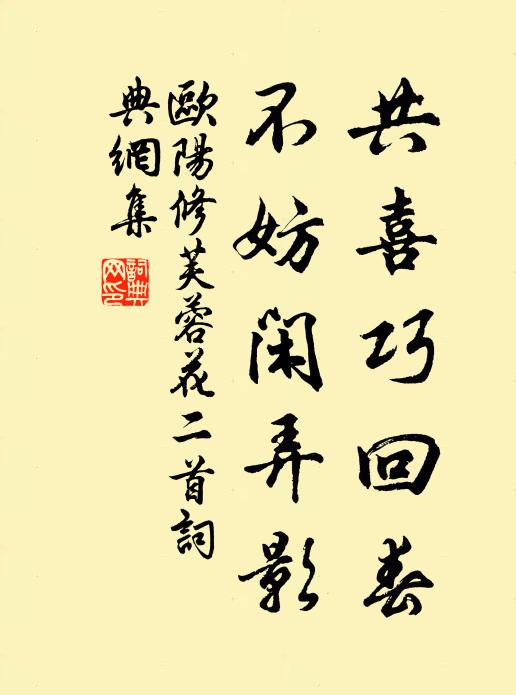 共喜巧回春
不妨閑弄影
歐陽修芙蓉花二首詞
典網集
詞典
網印